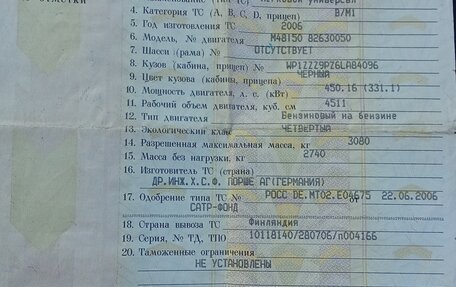 4. Категория ТС (А, В, С, D, прицеп) В/М1
5. Год изготовления ТС 2006
6. Модель, № двигателя М48150 82630050
7. Шасси (рама) № ОТСУТСТВУЕТ
8. Кузов (кабина, прицеп) № WP1ZZZ9PZ6LA84096
9. Цвет кузова (кабины, прицепа) ЧЕРНЫЙ
10. Мощность двигателя, л. с. (кВт) 450,16 (331.1)
11. Рабочий объем двигателя, куб. см 4511
12. Тип двигателя Бензиновый на бензине
13. Экологический класс ЧЕТВЕРТЫЙ
14. Разрешенная максимальная масса, кг 3080
15. Масса без нагрузки, кг 2740
16. Изготовитель ТС (страна)
ДР.ИНЖ.Х.С.Ф. ПОРШЕ АГ(ГЕРМАНИЯ)
17. Одобрение типа ТС № РОСС DE.МТ02.Е04675 от 22.06.2006
САТР-ФОНД
18. Страна вывоза ТС Финляндия
19. Серия, № ТД, ТПО 10118140/280706/п004166
20. Таможенные ограничения
НЕ УСТАНОВЛЕНЫ